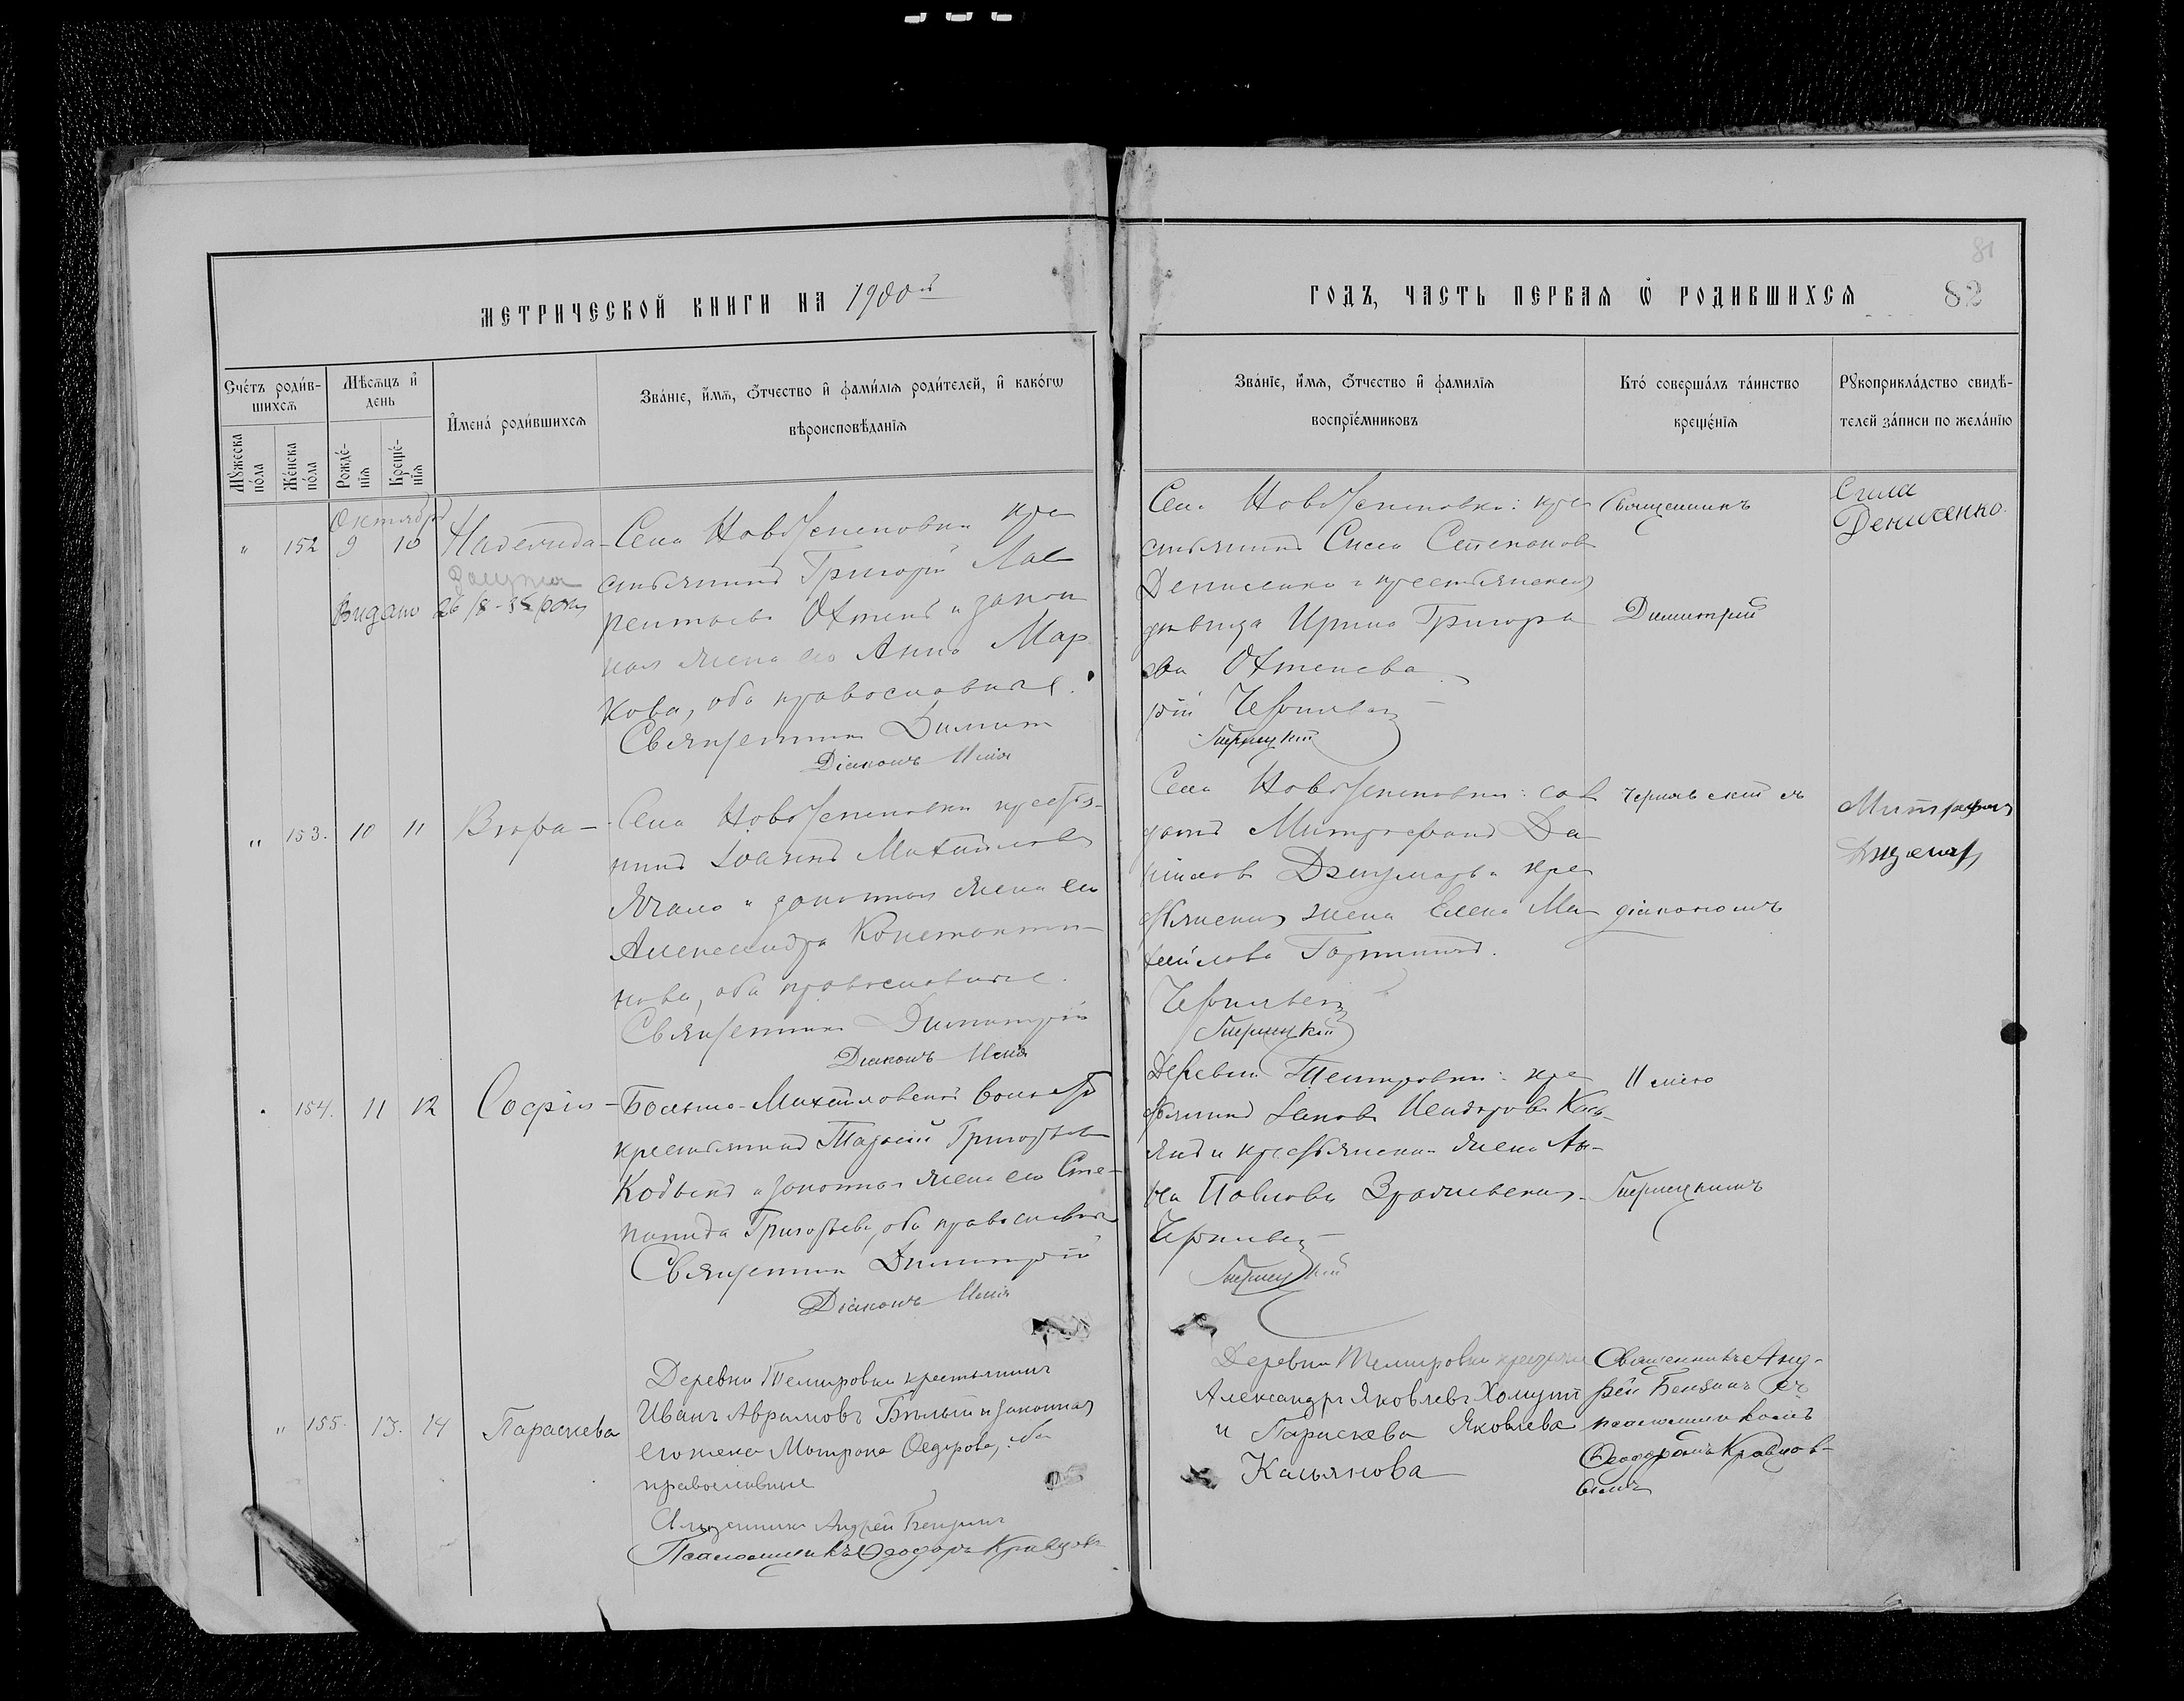 МЕТРИЧЕСКОЙ КНИГИ НА 1900й
ГОДЪ, ЧАСТЬ ПЕРВАЯ Ѿ РОДИВШИХСЯ
81
82
Счетъ родив-
шихся
Мѣсяцъ и
день
Имена родившихся
Званіе, имя, отчество и фамилія родителей, и какогѡ
вѣроисповѣданія
Мужеска
пола
Женска
пола
Рожде-
нія
Креще-
нія
Званіе, имя, отчество и фамилія
воспріемниковъ
Кто совершалъ таинство
крещенія
Рукоприкладство свидѣ-
телей записи по желанію
Октября
" 152 9 10 Надежда
Видано 26/8-35 року
Села НовоУспеновки кре
стьянинъ Григорій Лав
рентьевъ Охтень и закон
ная жена его Анна Мар
кова, оба православные.
Священникъ Димит
Діаконъ Илія
Села НовоУспеновки: кре
стьянинъ Сила Степановъ
Денисенко и крестьянская
дѣвица Ирина Григорье
ва Охтенева
рій Чернявск
Гиржицкій
Священникъ
Димитрій
Сила
Денисенко
" 153. 10 11 Вѣра
Села НовоУспеновки крестья-
нинъ Іоаннъ Михайловъ
и законная жена его
Александра Константи-
нова, оба православные.
Священникъ Димитрій
Діаконъ Илія
Села НовоУспеновки: сол
датъ Митрофанъ Да
ніиловъ и кре
стьянская жена Елена Ми
хайлова
Чернявск
Гиржицкій
Чернявскій съ
діакономъ
Митрофанъ
154. 11 12 Софія
Больше-Михайловской волости
крестьянинъ Тарасій Григорьевъ
и законная жена его Сте-
панида Григорьева, оба православные
Священникъ Димитрій
Діаконъ Илія
Деревни Темировки: кре
стьянинъ Іаковъ
и крестьянская жена Ан-
на Павлова
Чернявск
Гиржицкій
Иліею
Гиржицкимъ
" 155. 13. 14 Параскева
Деревни Темировки крестьянинъ
Иванъ Аврамовъ Бѣлый и законная
его жена Матрона Ѳедорова, оба
православные
Священникъ Андрей Бензинъ
Псаломщикъ Ѳеодоръ Кравцовъ
Деревни Темировки крестьян
Александръ Яковлевъ Хомутъ
и Параскева Яковлева
Касьянова
Священникъ Анд-
рей Бензинъ съ
псаломщикомъ
Ѳеодоромъ Кравцов-